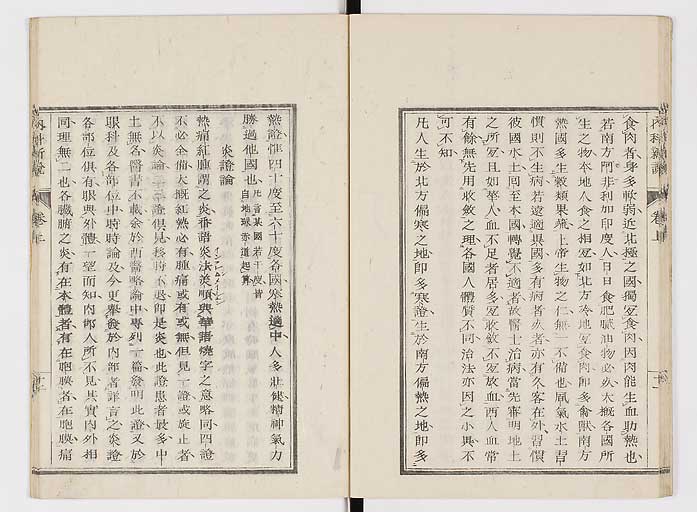 食肉者身多軟弱近北極之國獨宜食肉因肉能生血助熱也
若南方阿非利加印度人日日食肥膩油物必災大概各國所
生之物本地人食之相宜如北方冷地宜食肉即多禽獸南方
熱國多生穀類果蔬上帝生物之仁無一不備也風氣水土習
慣則不生病若遠適異國多有病者災者亦有久客在外習慣
彼國水土回至本國轉覺不適者故醫士治病當先審明地土
之所宜且如華人血不足者居多宜收斂不宜放血西人血常
有餘無先用收斂之理各國人體質不同治法亦因之小異不
可不知
凡人生於北方偏寒之地即多寒證生於南方偏熱之地即多
熱證惟四十度至六十度各國寒熱適中人多壯健精神氣力
勝過他國也 凡言某國若干度皆自地球赤道起算
炎證論
熱痛紅腫謂之炎番語炎法美順與華語燒字之意略同四證
不必全備大概紅熱必有腫痛或有或無但見一證或旋止者
不以炎論
土無名醫書不載余於西醫略論中專列一篇發明此證又於
眼科及各部位中時時論及今更舉發於內部者詳言之炎證
各部位俱有眼與外體一望而知內部人所不見其實內外相
同理無二也各臟腑之炎有在本體者有在胞膜者在胞膜痛
內科新說
卷上
內科新說
卷上